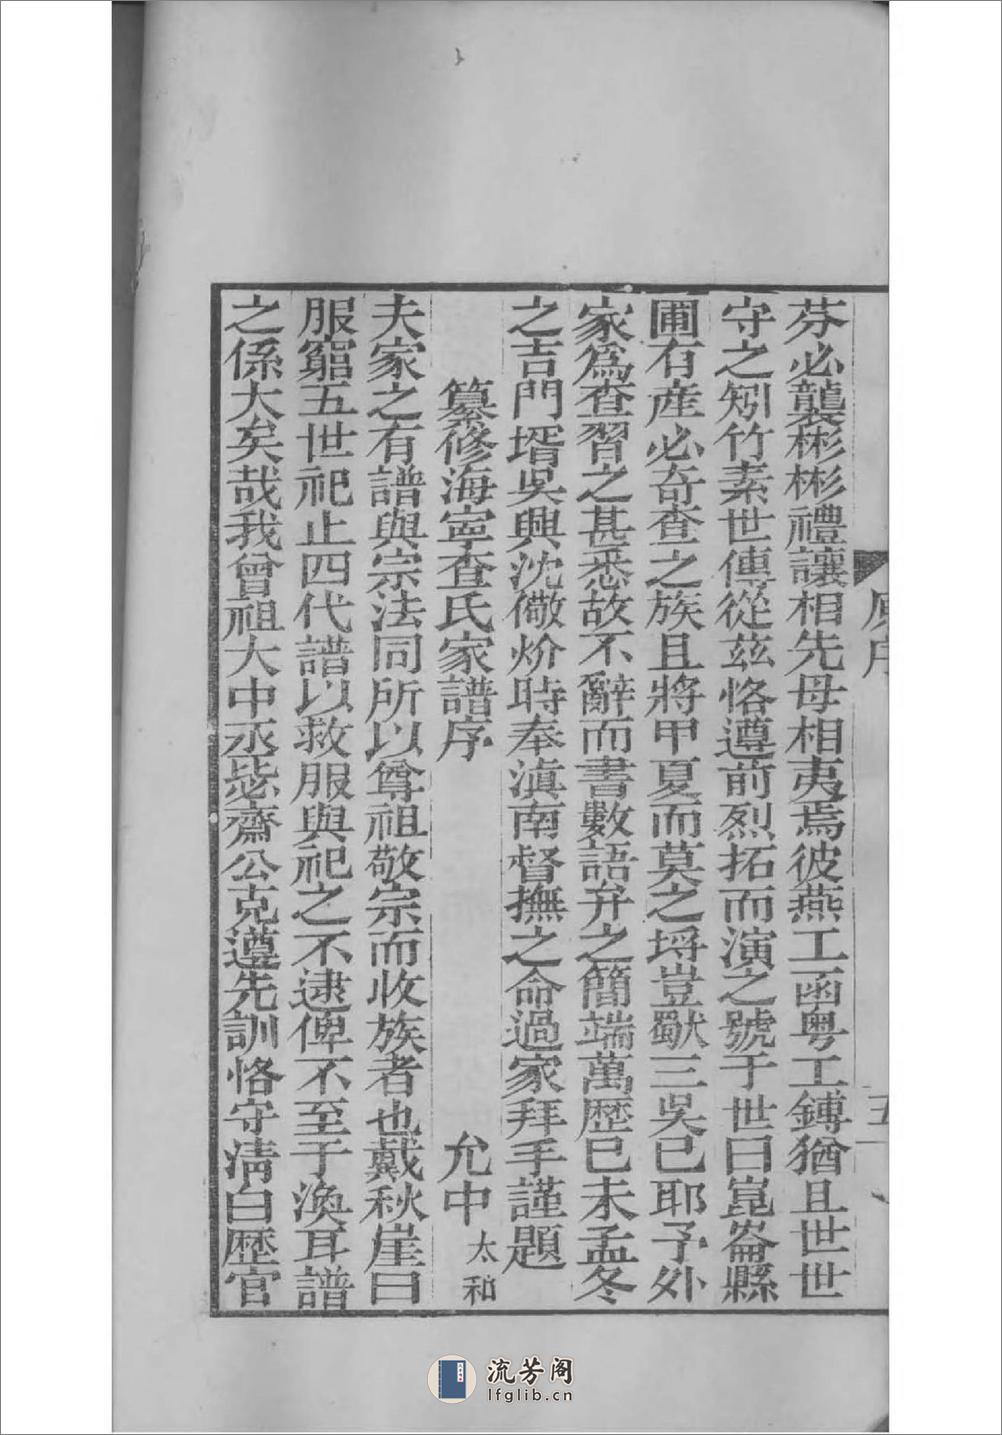 芬必襲彬彬禮讓相先毋相夷焉彼燕工函粤工鎛猶且世世
守之矧竹素世傳從茲恪遵前烈拓而演之號于世曰崑崙縣
圃石產必奇查之族且將甲夏而莫之埒豈獸三吳已耶予外
家爲查習之甚悉故不辭而書數語弁之簡端萬歷巳未孟冬
之吉門壻吳興沈儆炌時奉滇南督撫之命過家拜手謹題
纂修海寧查氏家譜序
允中 太和
夫家之有譜與宗法同所以尊祖敬宗而收族者也戴秋崖曰
服窮五世祀止四代譜以救服與祀之不逮俾不至于渙耳譜
之係大矣哉我曾祖大中丞毖齋公克遵先訓恪守清白歷官
原序
五
流芳阁
lfglib.cn